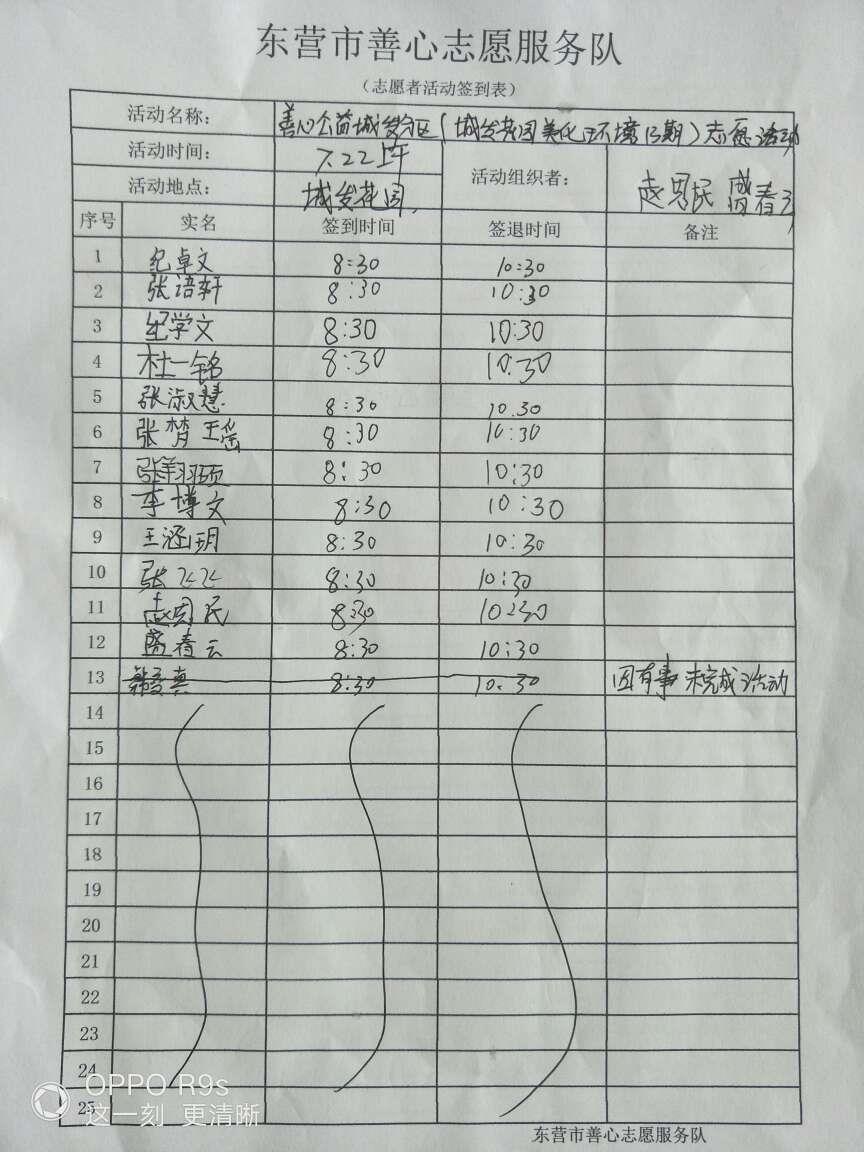 东营市善心志愿服务队
（志愿者活动签到表）
活动名称： 善心公益城发分区（城发花园美化环境13期）志愿活动
活动时间： 7.22上午
活动地点： 城发花园 活动组织者： 赵恩民 盛春云
序号 实名 签到时间 签退时间 备注
1 纪卓文 8:30 10:30
2 张语轩 8:30 10:30
3 纪学文 8:30 10:30
4 杜一铭 8:30 10:30
5 张淑慧 8:30 10.30
6 张梦瑶 8:30 10:30
7 张翔硕 8:30 10:30
8 李博文 8:30 10:30
9 王涵玥 8:30 10:30
10 张 8:30 10:30
11 赵恩民 8:30 10:30
12 盛春云 8:30 10:30
13 8:30 10:30 因有事未完成活动
14
15
16
17
18
19
20
21
22
23
24
25
东营市善心志愿服务队
OPPO R9s
这一刻 更清晰